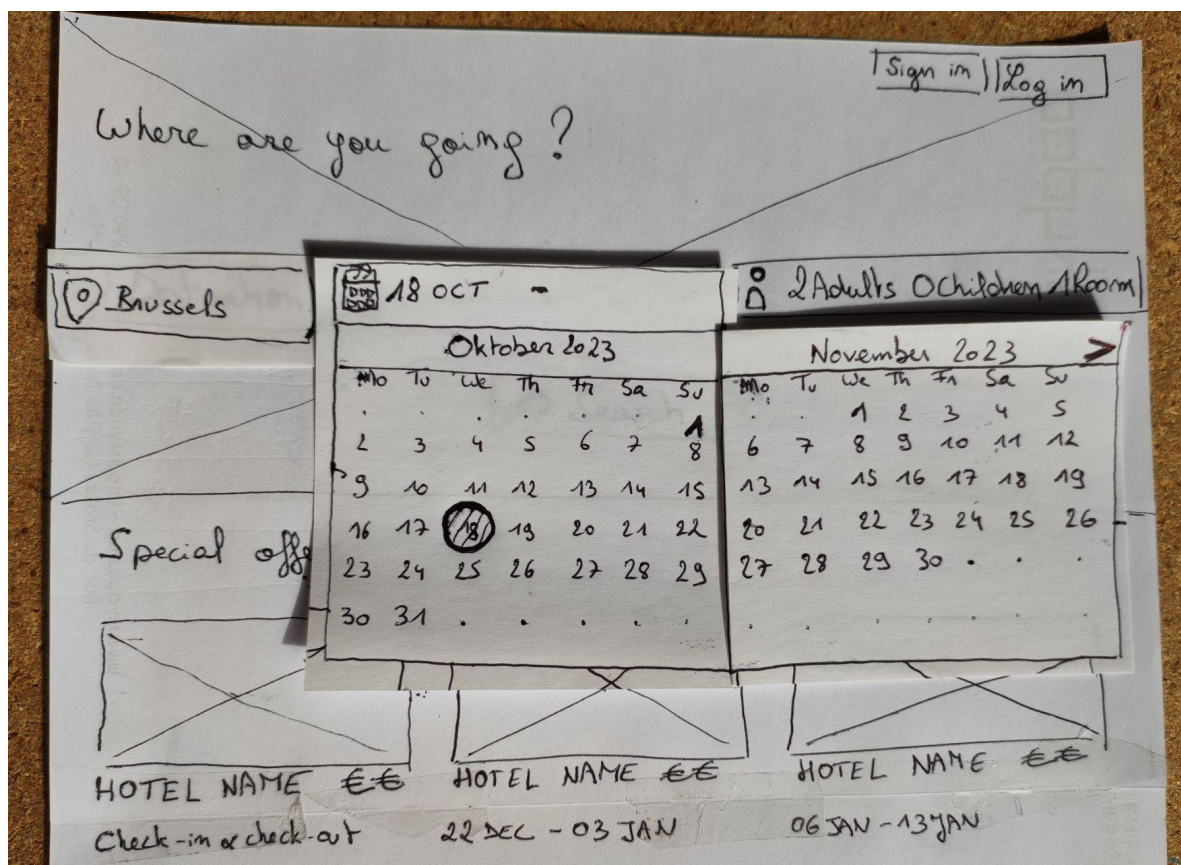 Sign in Log in
Where are you going?
Brussels
18 OCT -
2 Adults 0 Children 1 Room
Oktober 2023
Mo Tu We Th Fr Sa Su
1
2 3 4 5 6 7 8
9 10 11 12 13 14 15
16 17 18 19 20 21 22
23 24 25 26 27 28 29
30 31
November 2023 >
Mo Tu We Th Fr Sa Su
1 2 3 4 5
6 7 8 9 10 11 12
13 14 15 16 17 18 19
20 21 22 23 24 25 26
27 28 29 30
Special offe
HOTEL NAME €€
Check-in & check-out
HOTEL NAME €€
22 DEC - 03 JAN
HOTEL NAME €€
06 JAN - 13 JAN